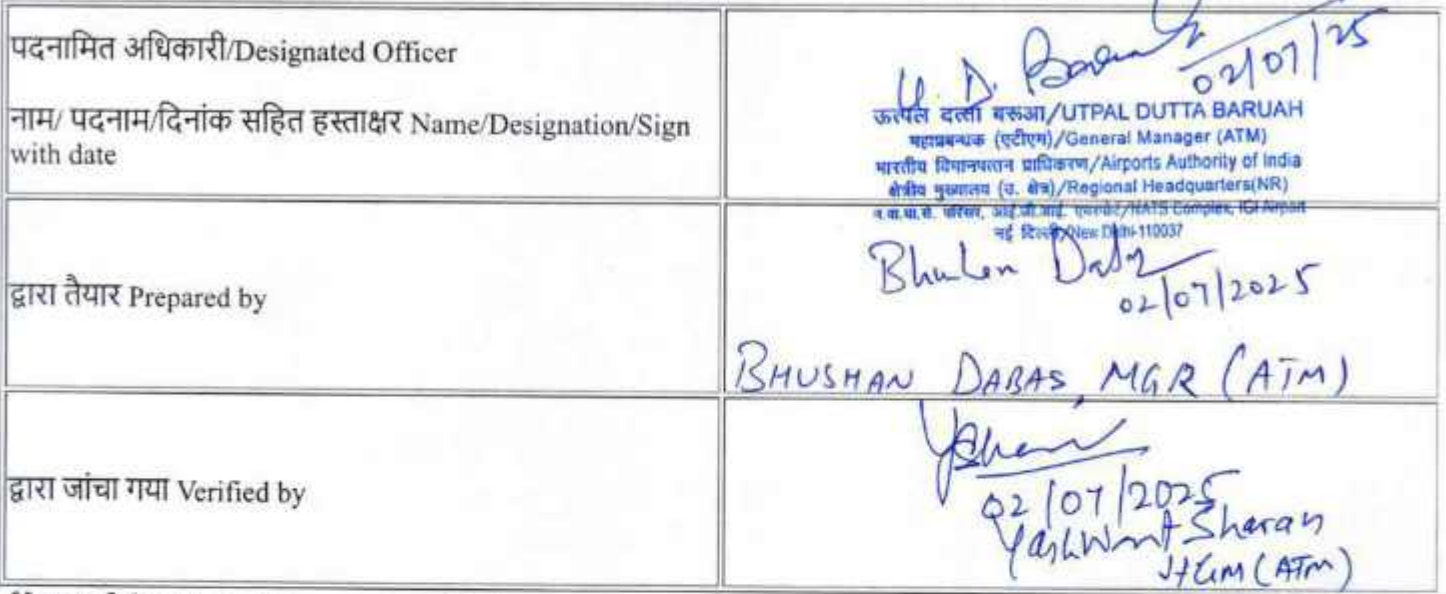 पदनामित अधिकारी/Designated Officer
नाम/ पदनाम/दिनांक सहित हस्ताक्षर Name/Designation/Sign
with date
U. D. Baruah
02/07/25
उत्पल दत्ता बरूआ/UTPAL DUTTA BARUAH
महाप्रबन्धक (एटीएम)/General Manager (ATM)
भारतीय विमानपत्तन प्राधिकरण/Airports Authority of India
क्षेत्रीय मुख्यालय (उ. क्षेत्र)/Regional Headquarters(NR)
परिसर, आई.जी.आई. एयरपोर्ट/NATS Complex, IGI Airport
नई दिल्ली/New Delhi-110037
द्वारा तैयार Prepared by
02/07/2025
BHUSHAN DABAS, MGR (ATM)
द्वारा जांचा गया Verified by
02/07/2025
Yashwant Sharan
JtGM (ATM)